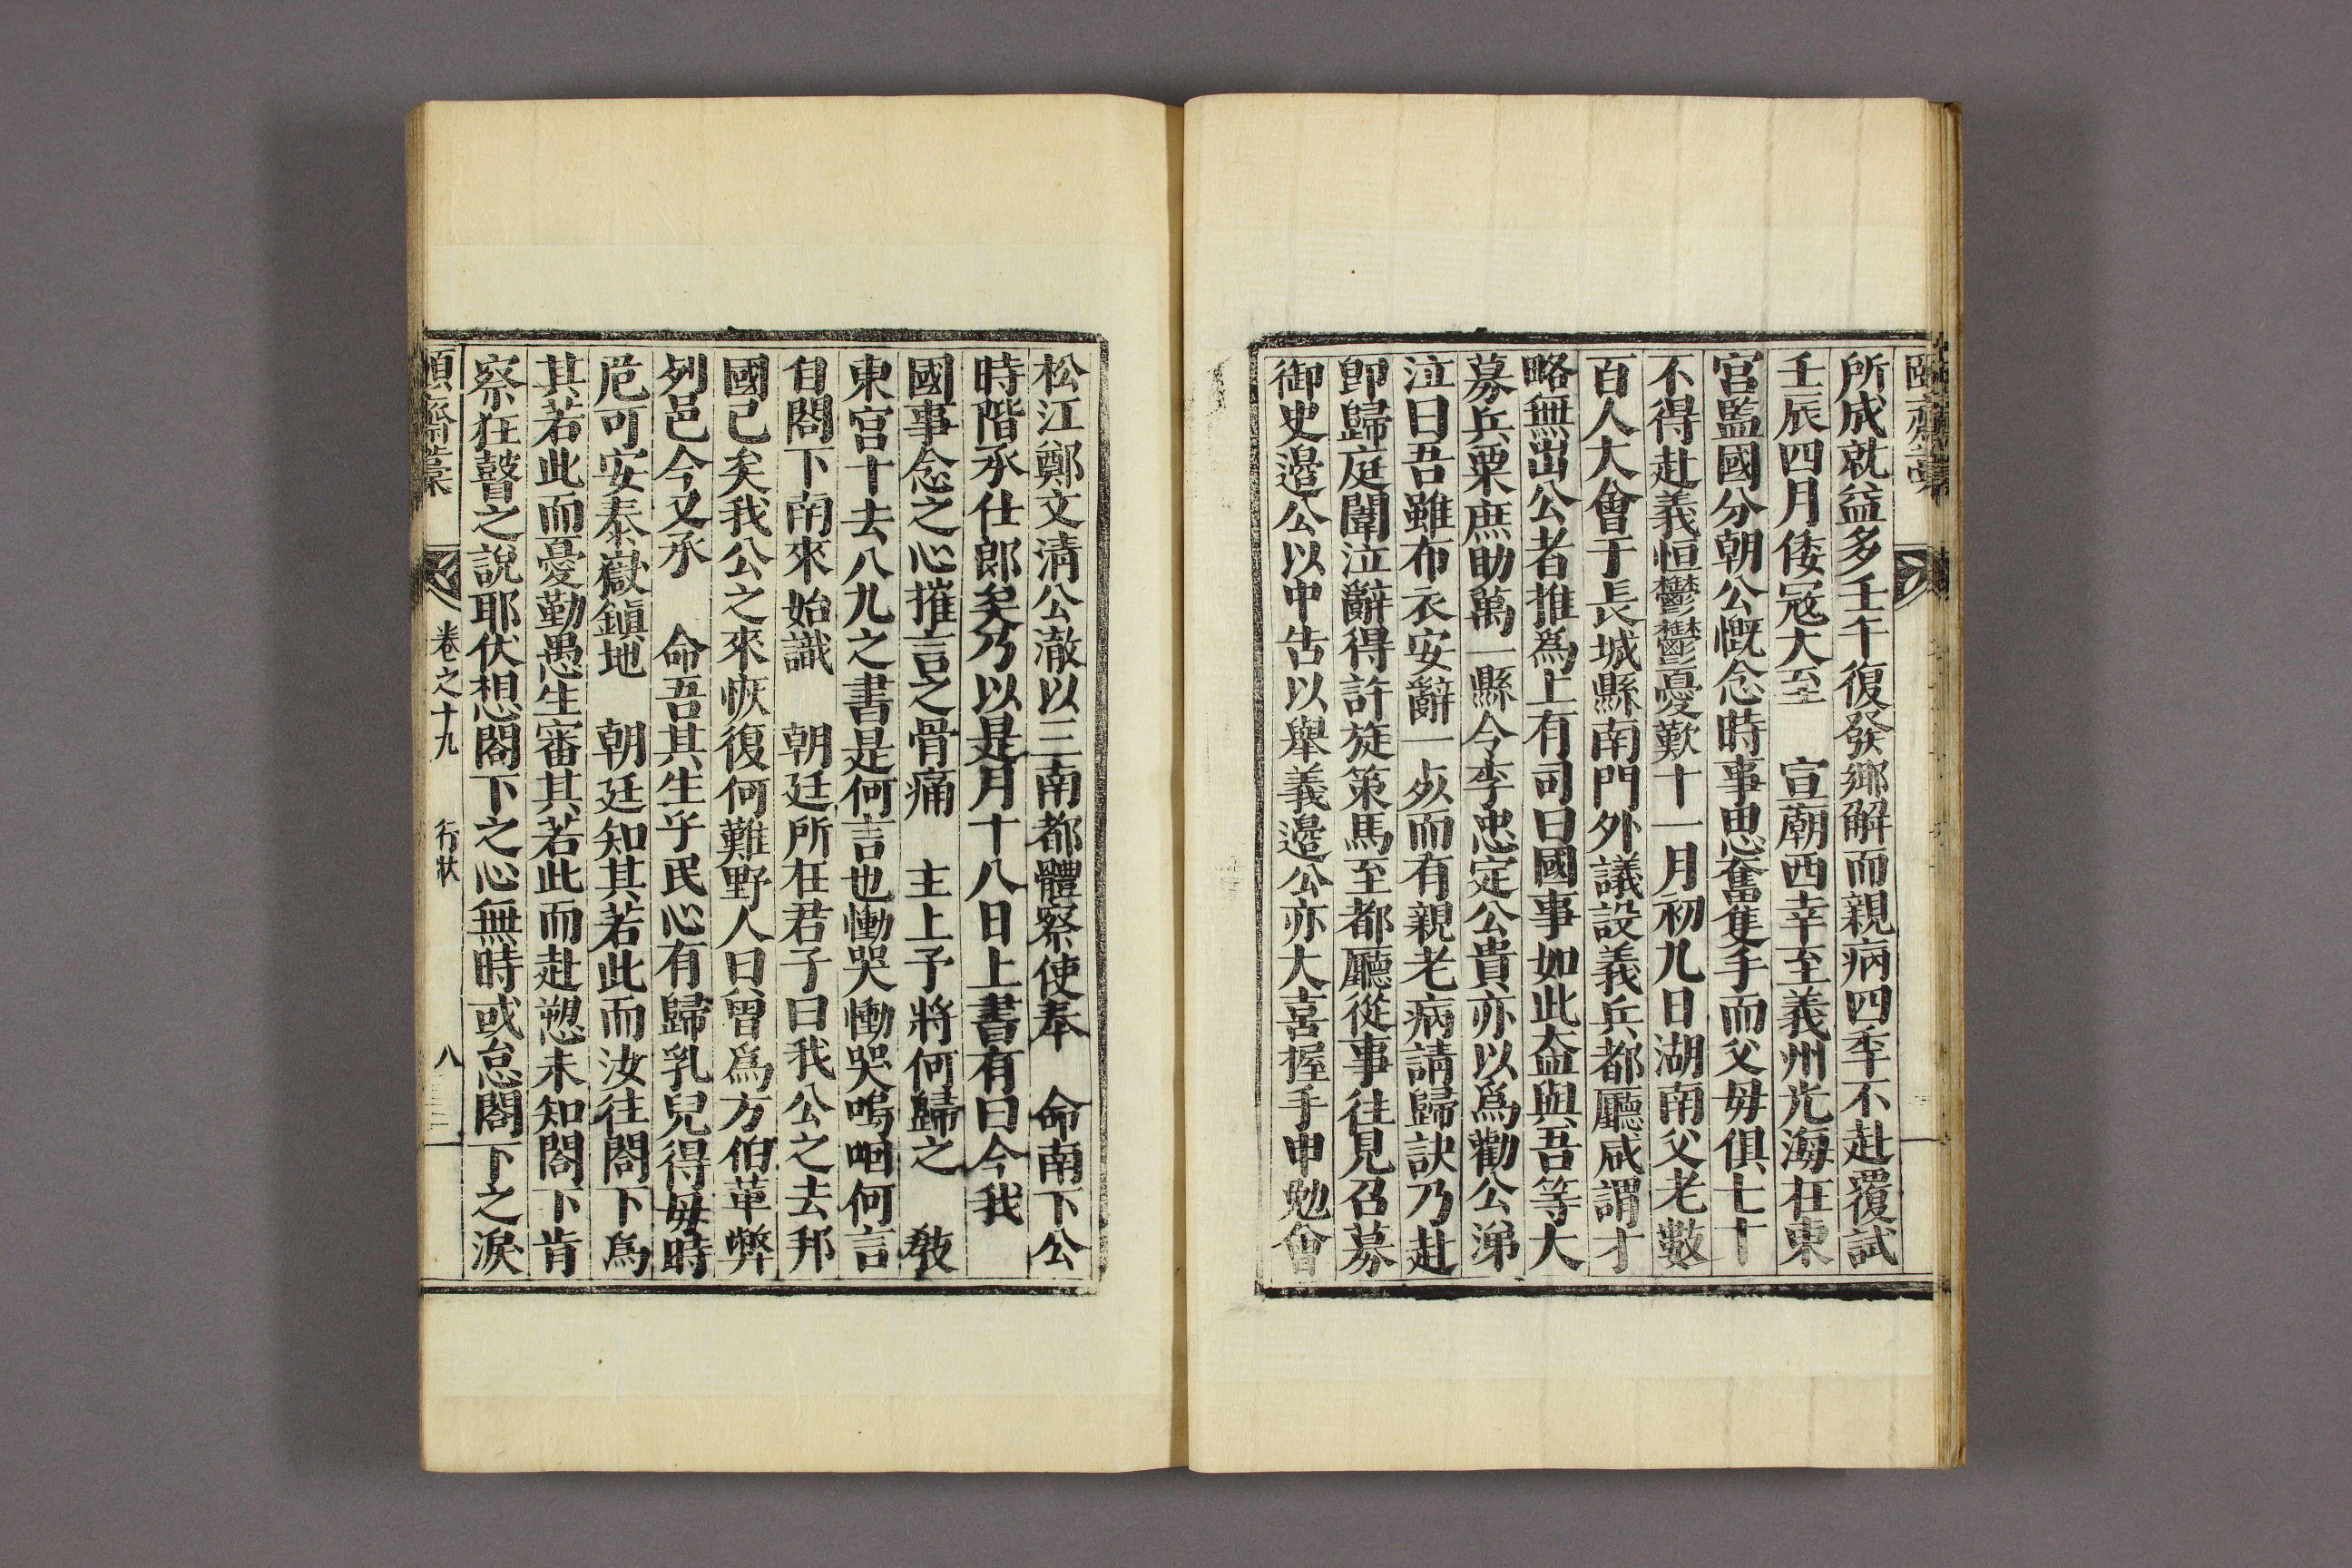 頤齋藁
所成就益多壬午復發鄕解而親病四季不赴覆試
壬辰四月倭寇大至 宣廟西幸至義州光海在東
宮監國分朝公慨念時事思奮隻手而父母俱七十
不得赴義恒鬱鬱憂歎十一月初九日湖南父老數
百人大會于長城縣南門外議設義兵都廳咸謂才
略無出公者推爲上有司曰國事如此盍與吾等大
募兵粟庶助萬一縣令李忠定公貴亦以爲勸公涕
泣曰吾雖布衣安辭一死而有親老病請歸訣乃赴
卽歸庭闈泣辭得許旋策馬至都廳從事往見召募
御史邉公以中告以舉義邉公亦大喜握手申勉會
松江鄭文淸公澈以三南都體察使奉 命南下公
時階承仕郞矣乃以是月十八日上書有曰今我
國事念之心摧言之骨痛 主上予將何歸之 敎
東宮十去八九之書是何言也慟哭慟哭嗚咽何言
自閤下南來始識 朝廷所在君子曰我公之去邦
國已矣我公之來恢復何難野人曰曾爲方伯革弊
列邑今又承 命吾其生乎民心有歸乳兒得母時
危可安泰嶽鎭地 朝廷知其若此而汝往閤下爲
其若此而憂勤愚生審其若此而赴愬未知閤下肯
察狂瞽之說耶伏想閤下之心無時或怠閤下之淚
頤齋藁 卷之十九 行狀 八